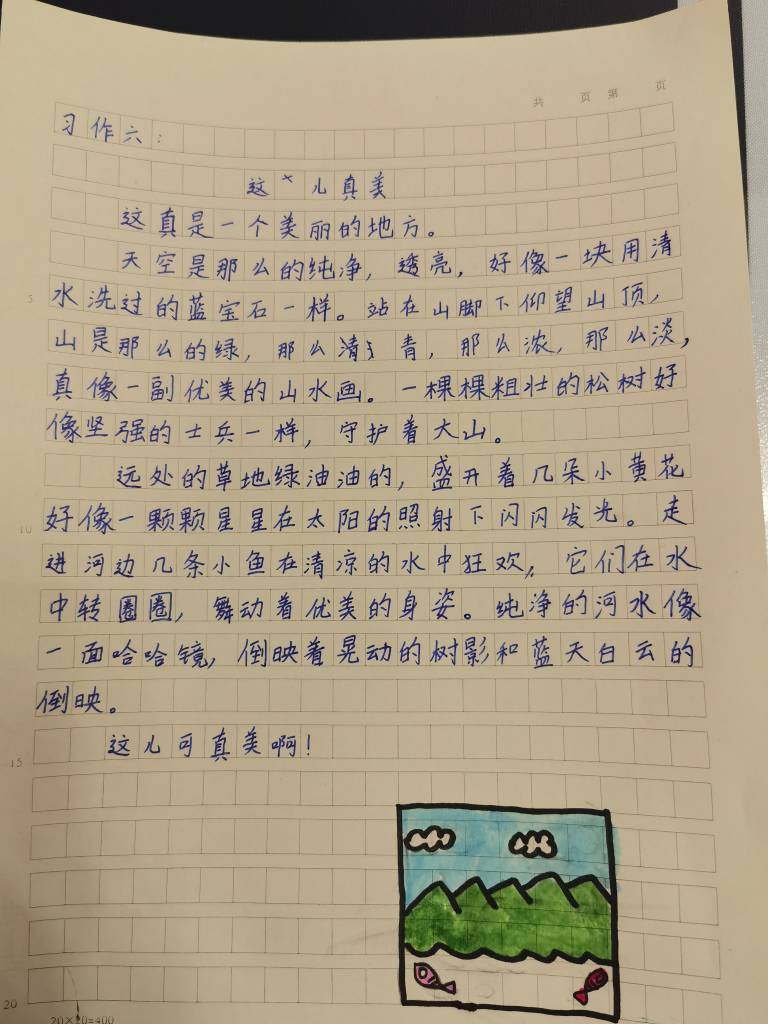 共 页 第 页
习作六：
这 儿真美
这真是一个美丽的地方。
天空是那么的纯净，透亮，好像一块用清
5 水洗过的蓝宝石一样。站在山脚下仰望山顶，
山是那么的绿，那么青，那么浓，那么淡，
真像一副优美的山水画。一棵棵粗壮的松树好
像坚强的士兵一样，守护着大山。
远处的草地绿油油的，盛开着几朵小黄花
10 好像一颗颗星星在太阳的照射下闪闪发光。走
进河边几条小鱼在清凉的水中狂欢，它们在水
中转圈圈，舞动着优美的身姿。纯净的河水像
一面哈哈镜，倒映着晃动的树影和蓝天白云的
倒映。
15 这儿可真美啊！
20
20×20=400